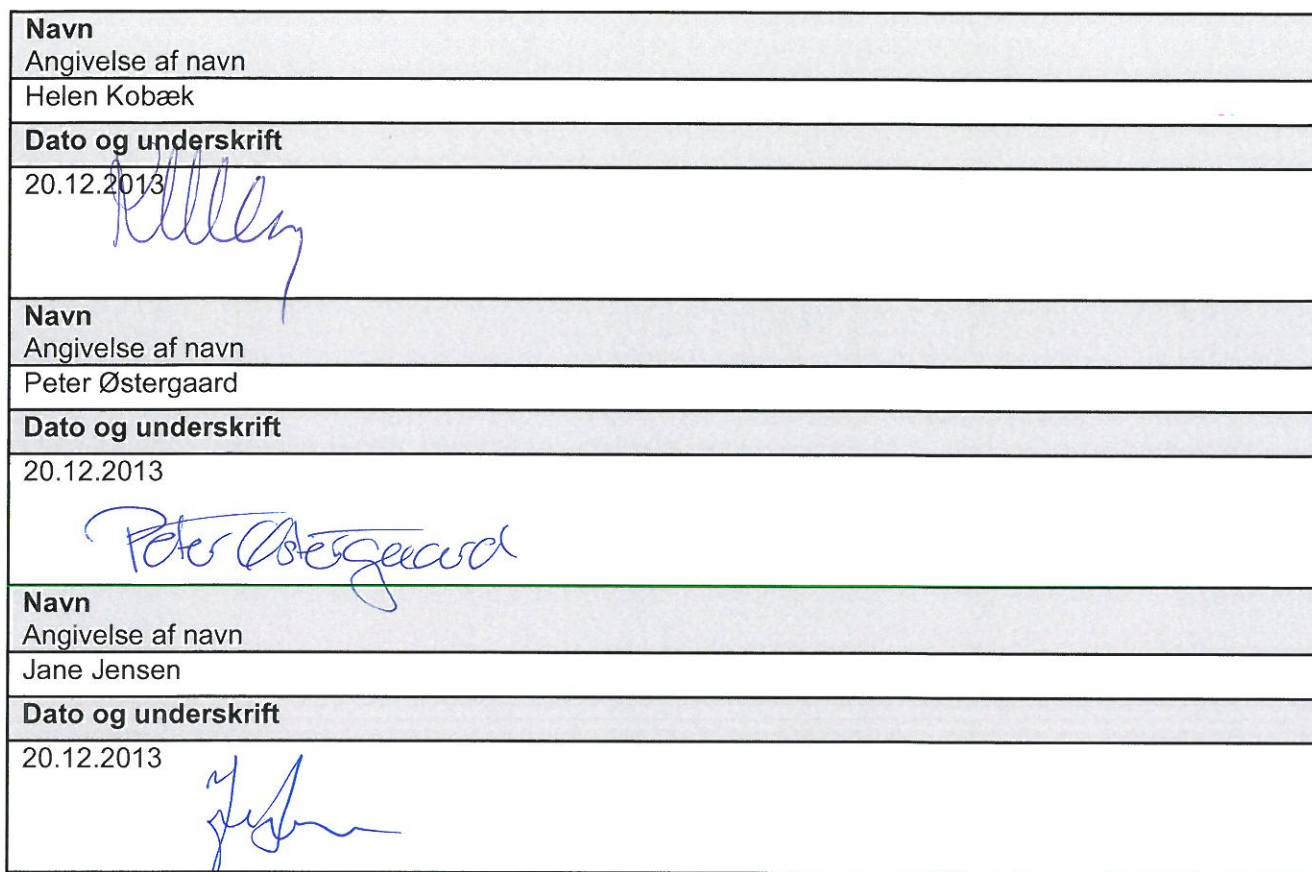 Navn
Angivelse af navn
Helen Kobæk
Dato og underskrift
20.12.2013
Navn
Angivelse af navn
Peter Østergaard
Dato og underskrift
20.12.2013
Peter Østergaard
Navn
Angivelse af navn
Jane Jensen
Dato og underskrift
20.12.2013